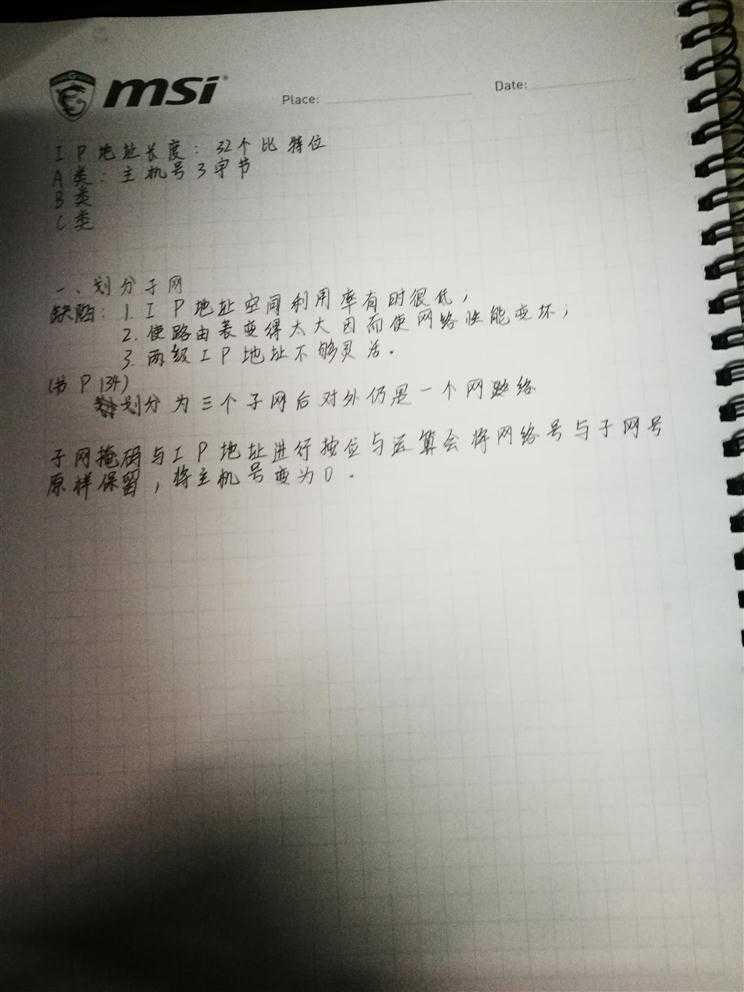 msi
Place:
Date:
IP地址长度：32个比特位
A类：主机号3字节
B类
C类
一、划分子网
缺陷：1. IP地址空间利用率有时很低；
2. 使路由表变得太大因而使网络性能变坏；
3. 两级IP地址不够灵活。
(书P134)
划分为三个子网后对外仍是一个网路络
子网掩码与IP地址进行按位与运算会将网络号与子网号
原样保留，将主机号变为0。